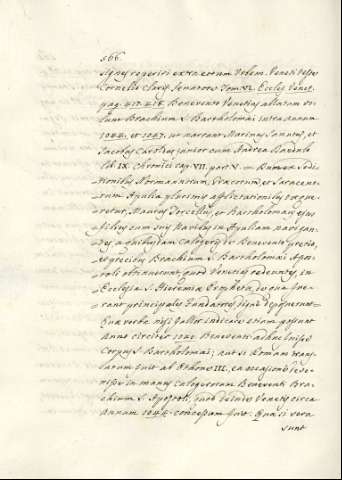 566.
signes reperiri extra eorum Urbem. Veneti teste
Cornelio clariss. Senatore Tom. XI. Eccles. Venet.
pag. 417. 418. Benevento Venetias allatum vo-
lunt Brachium S. Bartholomæi intra annum
1043. et 1047. ut narrant Marinus Sanutus, et
Jacobus Caroldus junior cum Andrea Dandulo
lib. IX. Chronici cap. VII. part. V. Dum
Normannorum Græcorum, et Saracenu-
rum Apulia plurimis afflictationibus
retur, Maurus Torcellus, et Bartholomæus ejus
filius cum suis Navibus in Apuliam navigan-
tes a quibusdam calogeris de Benevento pretio,
et precibus Brachium S. Bartholomæi Apo-
stoli obtinuerunt, quod Venetias redeuntes, in
Ecclesia S. Hieremiæ Prophetæ, de qua fue-
rant principales fundatores digne deposuerunt.
Quæ verba nisi fallor indicare etiam possunt
Anno circiter 1043. Beneventi adhuc fuisse
Corpus S. Bartholomæi; aut si Romam trans-
latum fuit ab Othone III. ea occasione reve-
nisse in manus calogerorum Beneventi Bra-
chium S. Apostoli, quod deinde Venetis circa
Annum 1043. concessum fuit. Quasi vera
sunt